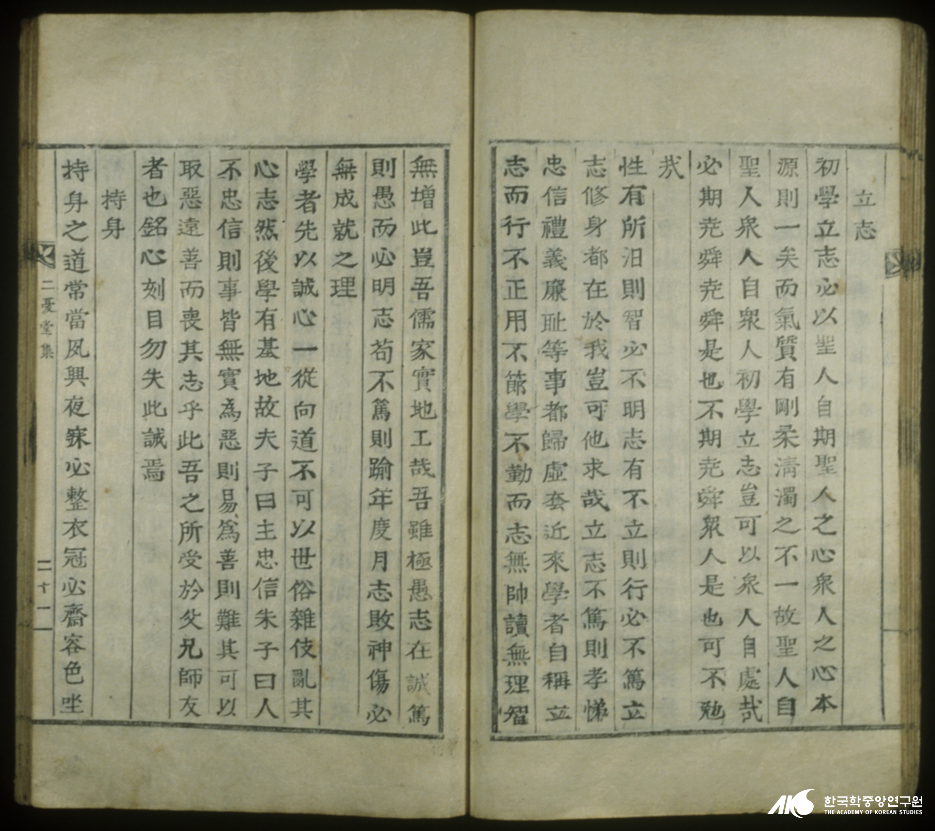 立志
初學立志必以聖人自期聖人之心衆人之心本
源則一矣而氣質有剛柔淸濁之不一故聖人自
聖人衆人自衆人初學立志豈可以衆人自處哉
必期堯舜堯舜是也不期堯舜衆人是也可不勉
哉
性有所汨則智必不明志有不立則行必不篤立
志修身都在於我豈可他求哉立志不篤則孝悌
忠信禮義廉耻等事都歸虛套近來學者自稱立
志而行不正用不節學不勤而志無帥讀無理智
無增此豈吾儒家實地工哉吾雖極愚志在誠篤
則愚而必明志苟不篤則踰年度月志敗神傷必
無成就之理
學者先以誠心一從向道不可以世俗雜伎亂其
心志然後學有基地故夫子曰主忠信朱子曰人
不忠信則事皆無實爲惡則易爲善則難其可以
取惡遠善而喪其志乎此吾之所受於父兄師友
者也銘心刻目勿失此誠焉
持身
持身之道常當夙興夜寐必整衣冠必齊容色坐
二憂堂集
二十一
한국학중앙연구원
THE ACADEMY OF KOREAN STUDIES